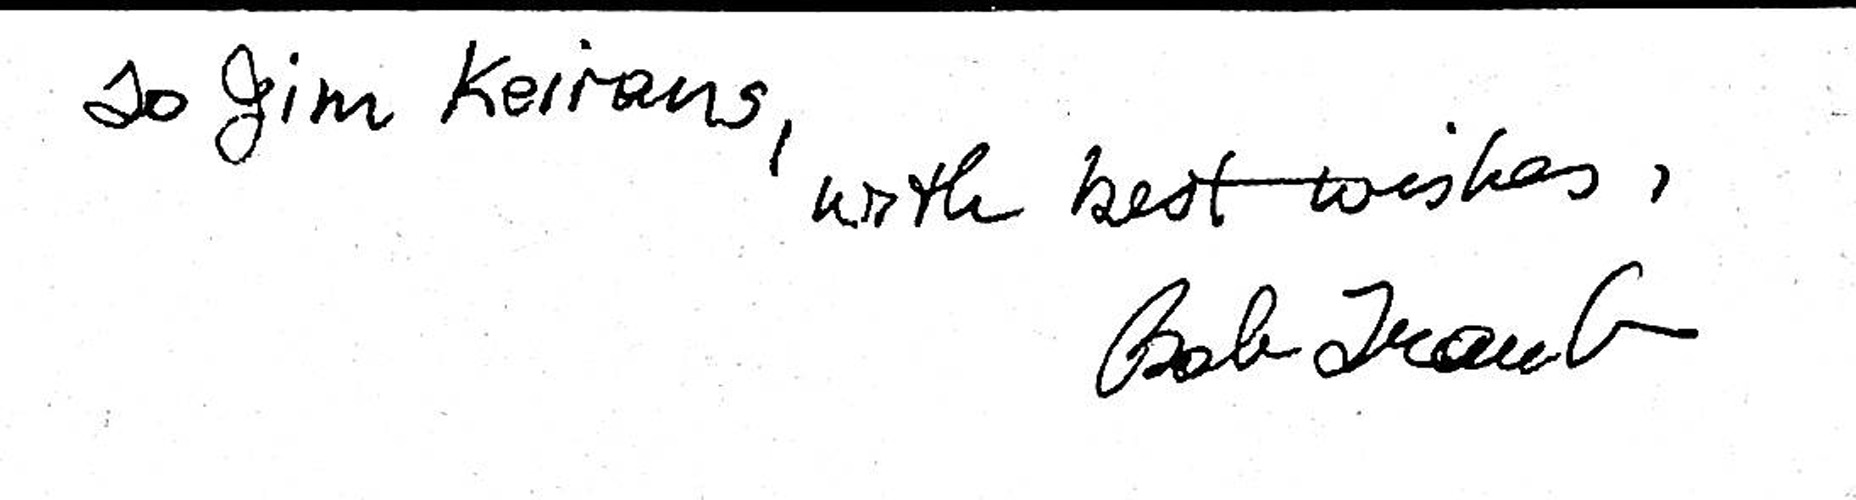 To Jim Keirans,
with best wishes,
Bob Traub